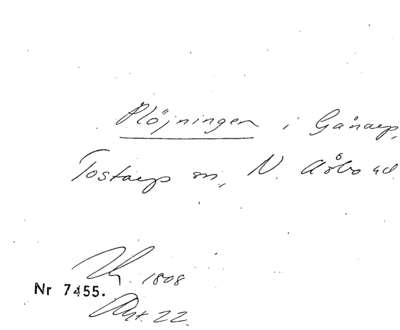 Plöjningen i Gånarp,
Tostarp sn, N. Åsbo hd.
1808
Nr 7455.
22